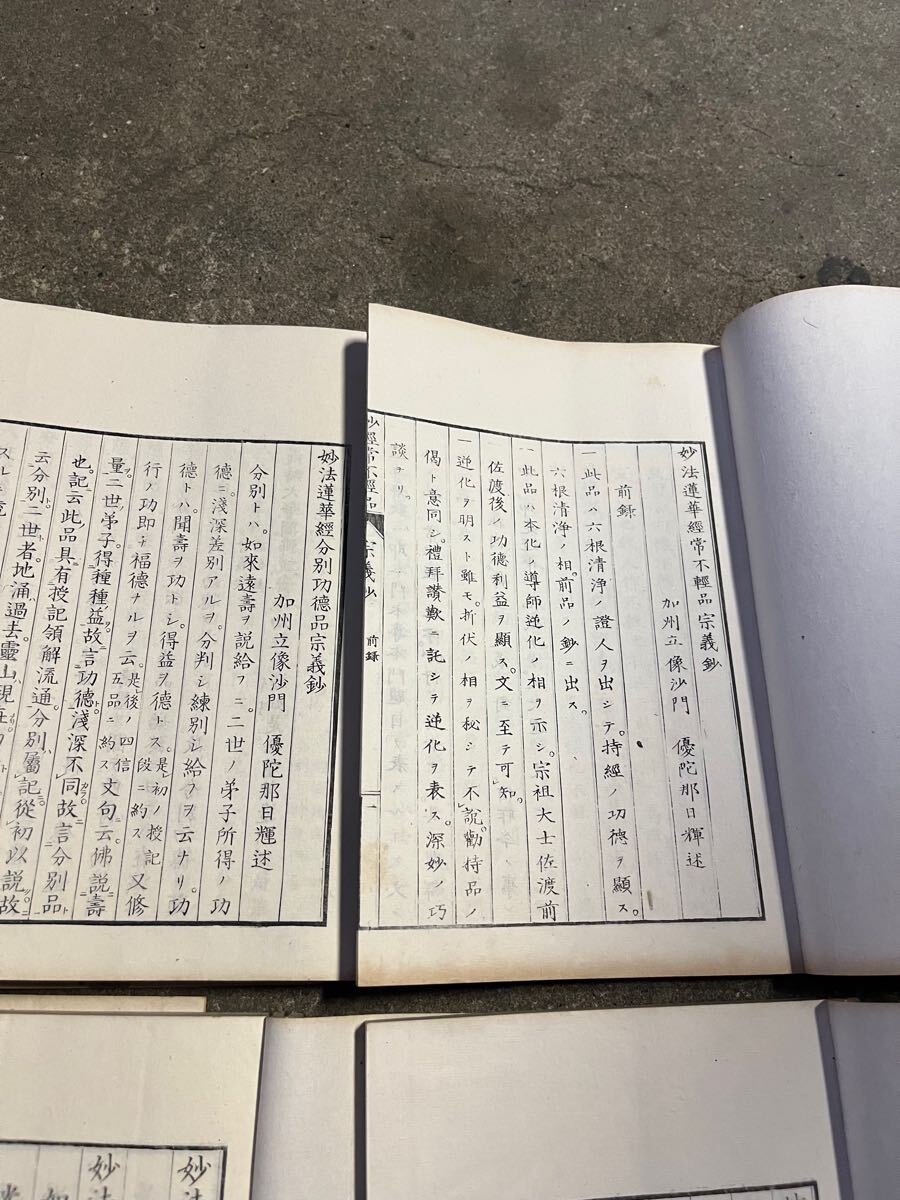 妙法蓮華經常不輕品宗義鈔
加州立像沙門　優陀那日輝述
前錄
一此品ハ六根清淨ノ證人ヲ出シテ。持經ノ功德ヲ顯ス。
六根清淨ノ相。前品ノ鈔ニ出ス。
一此品ハ本化ノ導師逆化ノ相ヲ示シ。宗祖大士佐渡前
佐渡後ノ功德利益ヲ顯ス。文ニ至テ可知。
一逆化ヲ明スト雖モ。折伏ノ相ヲ秘シテ不說。勸持品ノ
偈ト意同シ。禮拜讃歎ニ託シテ逆化ヲ表ス。深妙ノ巧
談ナリ。
妙經常不輕品　宗義鈔　前錄　一
妙法蓮華經分別功德品宗義鈔
加州立像沙門　優陀那日輝述
分別トハ。如來遠壽ヲ說給フニ。二世ノ弟子所得ノ功
德ニ淺深差別アルヲ。分判シ練別シ給フヲ云ナリ。功
德トハ。聞壽ヲ功トシ。得益ヲ德トス。是初ノ授記段ニ約ス又修
行ノ功即チ福德ナルヲ云。是後ノ四信五品ニ約ス文句云。佛說壽
量。二世弟子。得種種益。故言功德。淺深不同。故言分別品
也。記云。此品具有授記領解流通。分別屬記。從初以說故
云分別。二世者。地涌過去。靈山現在。
妙法
妙法